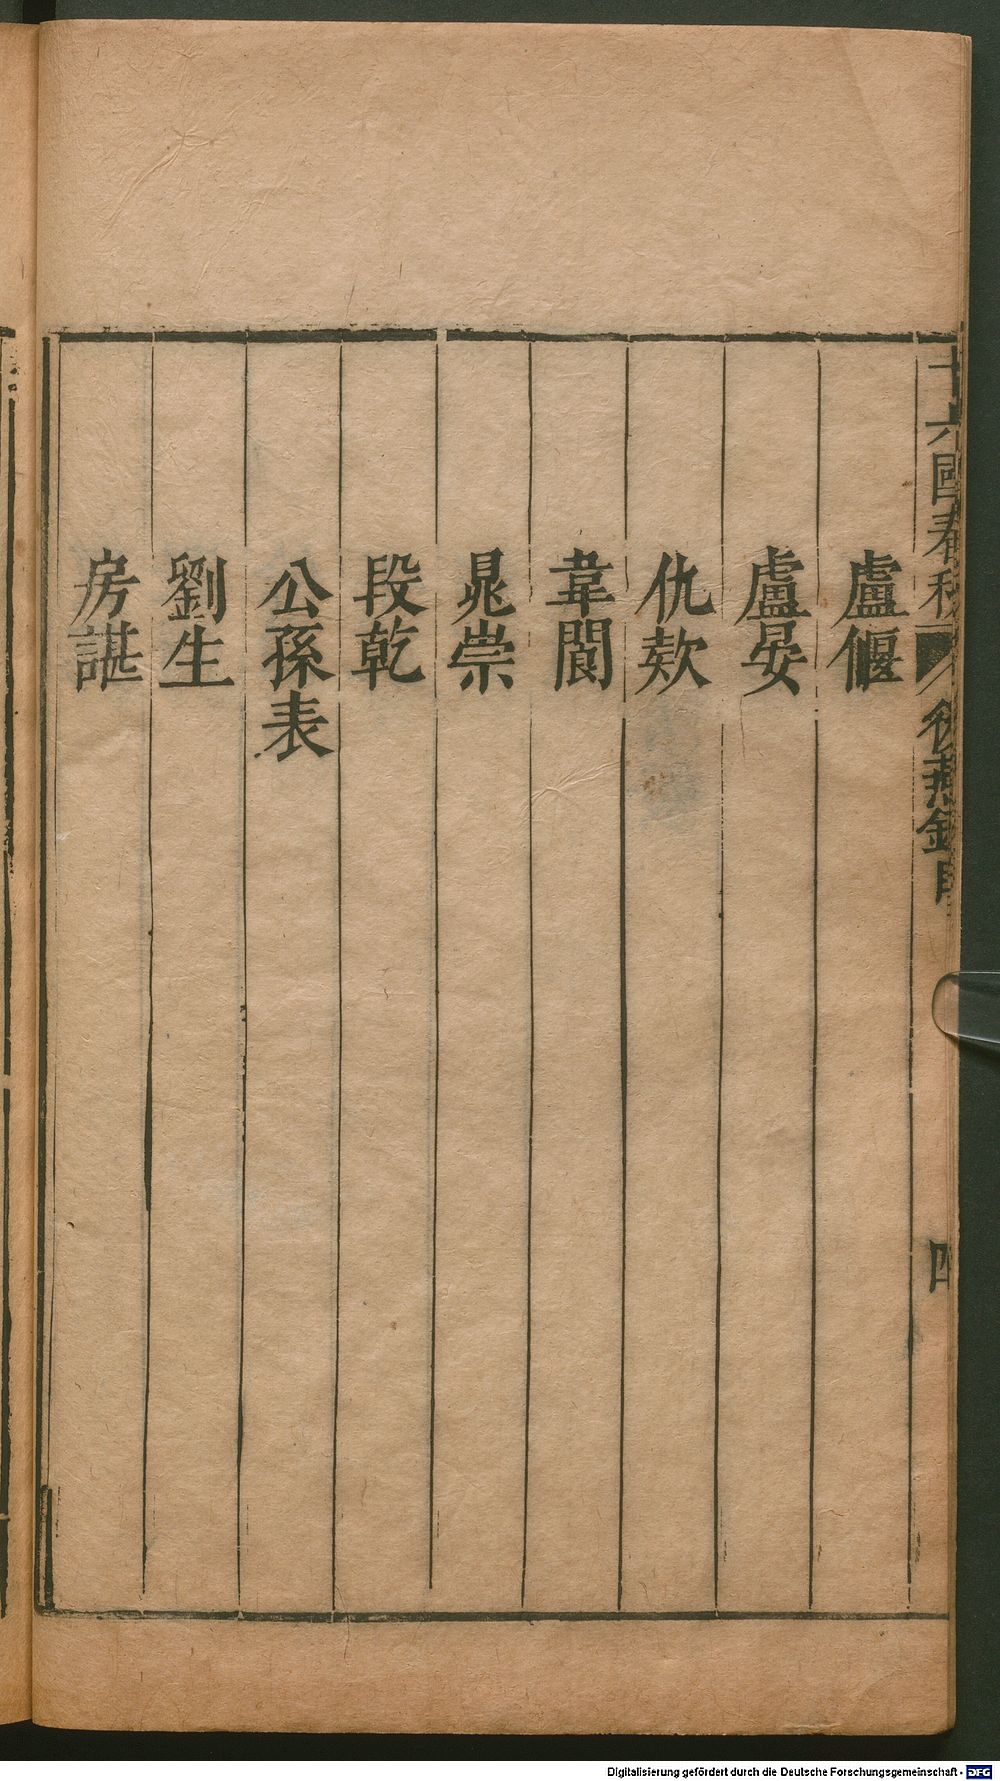 十六國春秋 後燕錄目 四
盧偃
盧晏
仇款
韋閬
晁崇
段乾
公孫表
劉生
房諶
Digitalisierung gefördert durch die Deutsche Forschungsgemeinschaft - DFG